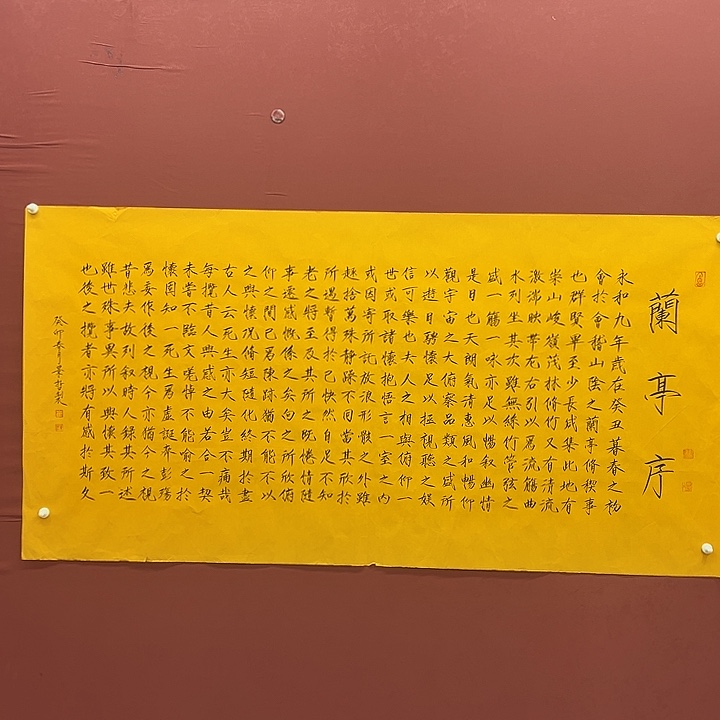 蘭亭序
永和九年歲在癸丑暮春之初
會於會稽山陰之蘭亭脩禊事
也群賢畢至少長咸集此地有
崇山峻嶺茂林脩竹又有清流
激湍映帶左右引以爲流觴曲
水列坐其次雖無絲竹管弦之
盛一觴一詠亦足以暢叙幽情
是日也天朗氣清惠風和暢仰
觀宇宙之大俯察品類之盛所
以遊目騁懷足以極視聽之娱
信可樂也夫人之相與俯仰一
世或取諸懷抱悟言一室之内
或因寄所託放浪形骸之外雖
趣捨萬殊靜躁不同當其欣於
所遇暫得於己快然自足不知
老之將至及其所之既惓情隨
事遷感慨係之矣向之所欣俯
仰之閒已爲陳跡猶不能不以
之興懷況脩短隨化終期於盡
古人云死生亦大矣豈不痛哉
每攬昔人興感之由若合一契
未嘗不臨文嗟悼不能喻之於
懷固知一死生爲虛誕齊彭殤
爲妄作後之視今亦猶今之視
昔悲夫故列叙時人錄其所述
雖世殊事異所以興懷其致一
也後之攬者亦將有感於斯文
癸卯春月